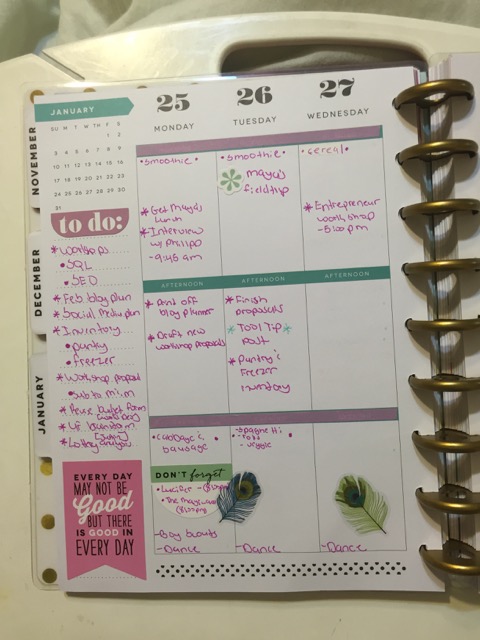 NOVEMBER
DECEMBER
JANUARY
JANUARY
SU M T W TH F S
1 2
3 4 5 6 7 8 9
10 11 12 13 14 15 16
17 18 19 20 21 22 23
24 25 26 27 28 29 30
31
to do:
* Workshops
• SQL
• SED
* Feb blog plan
* Social media plan
* Inventory
• pantry
• freezer
* Workshop proposal
EVERY DAY
MAY NOT BE
Good
BUT THERE
IS GOOD IN
EVERY DAY
25
MONDAY
• Smoothie •
* Get Maya's
* Interview
w/ Phillipo
- 9:45 am
AFTERNOON
* Print off
blog planner
* Draft new
workshop proposals
• cabbage &
sausage
DON'T forget
• Lucifer
- Boy Scouts
- Dance
26
TUESDAY
• Smoothie •
maya's
field trip
AFTERNOON
* Finish
proposals
* Tool Tip *
Post
* Pantry &
Freezer
inventory
• spaghetti
- veggie
- Dance
27
WEDNESDAY
• cereal •
* Entrepreneur
workshop
- 5:00 pm
- Dance